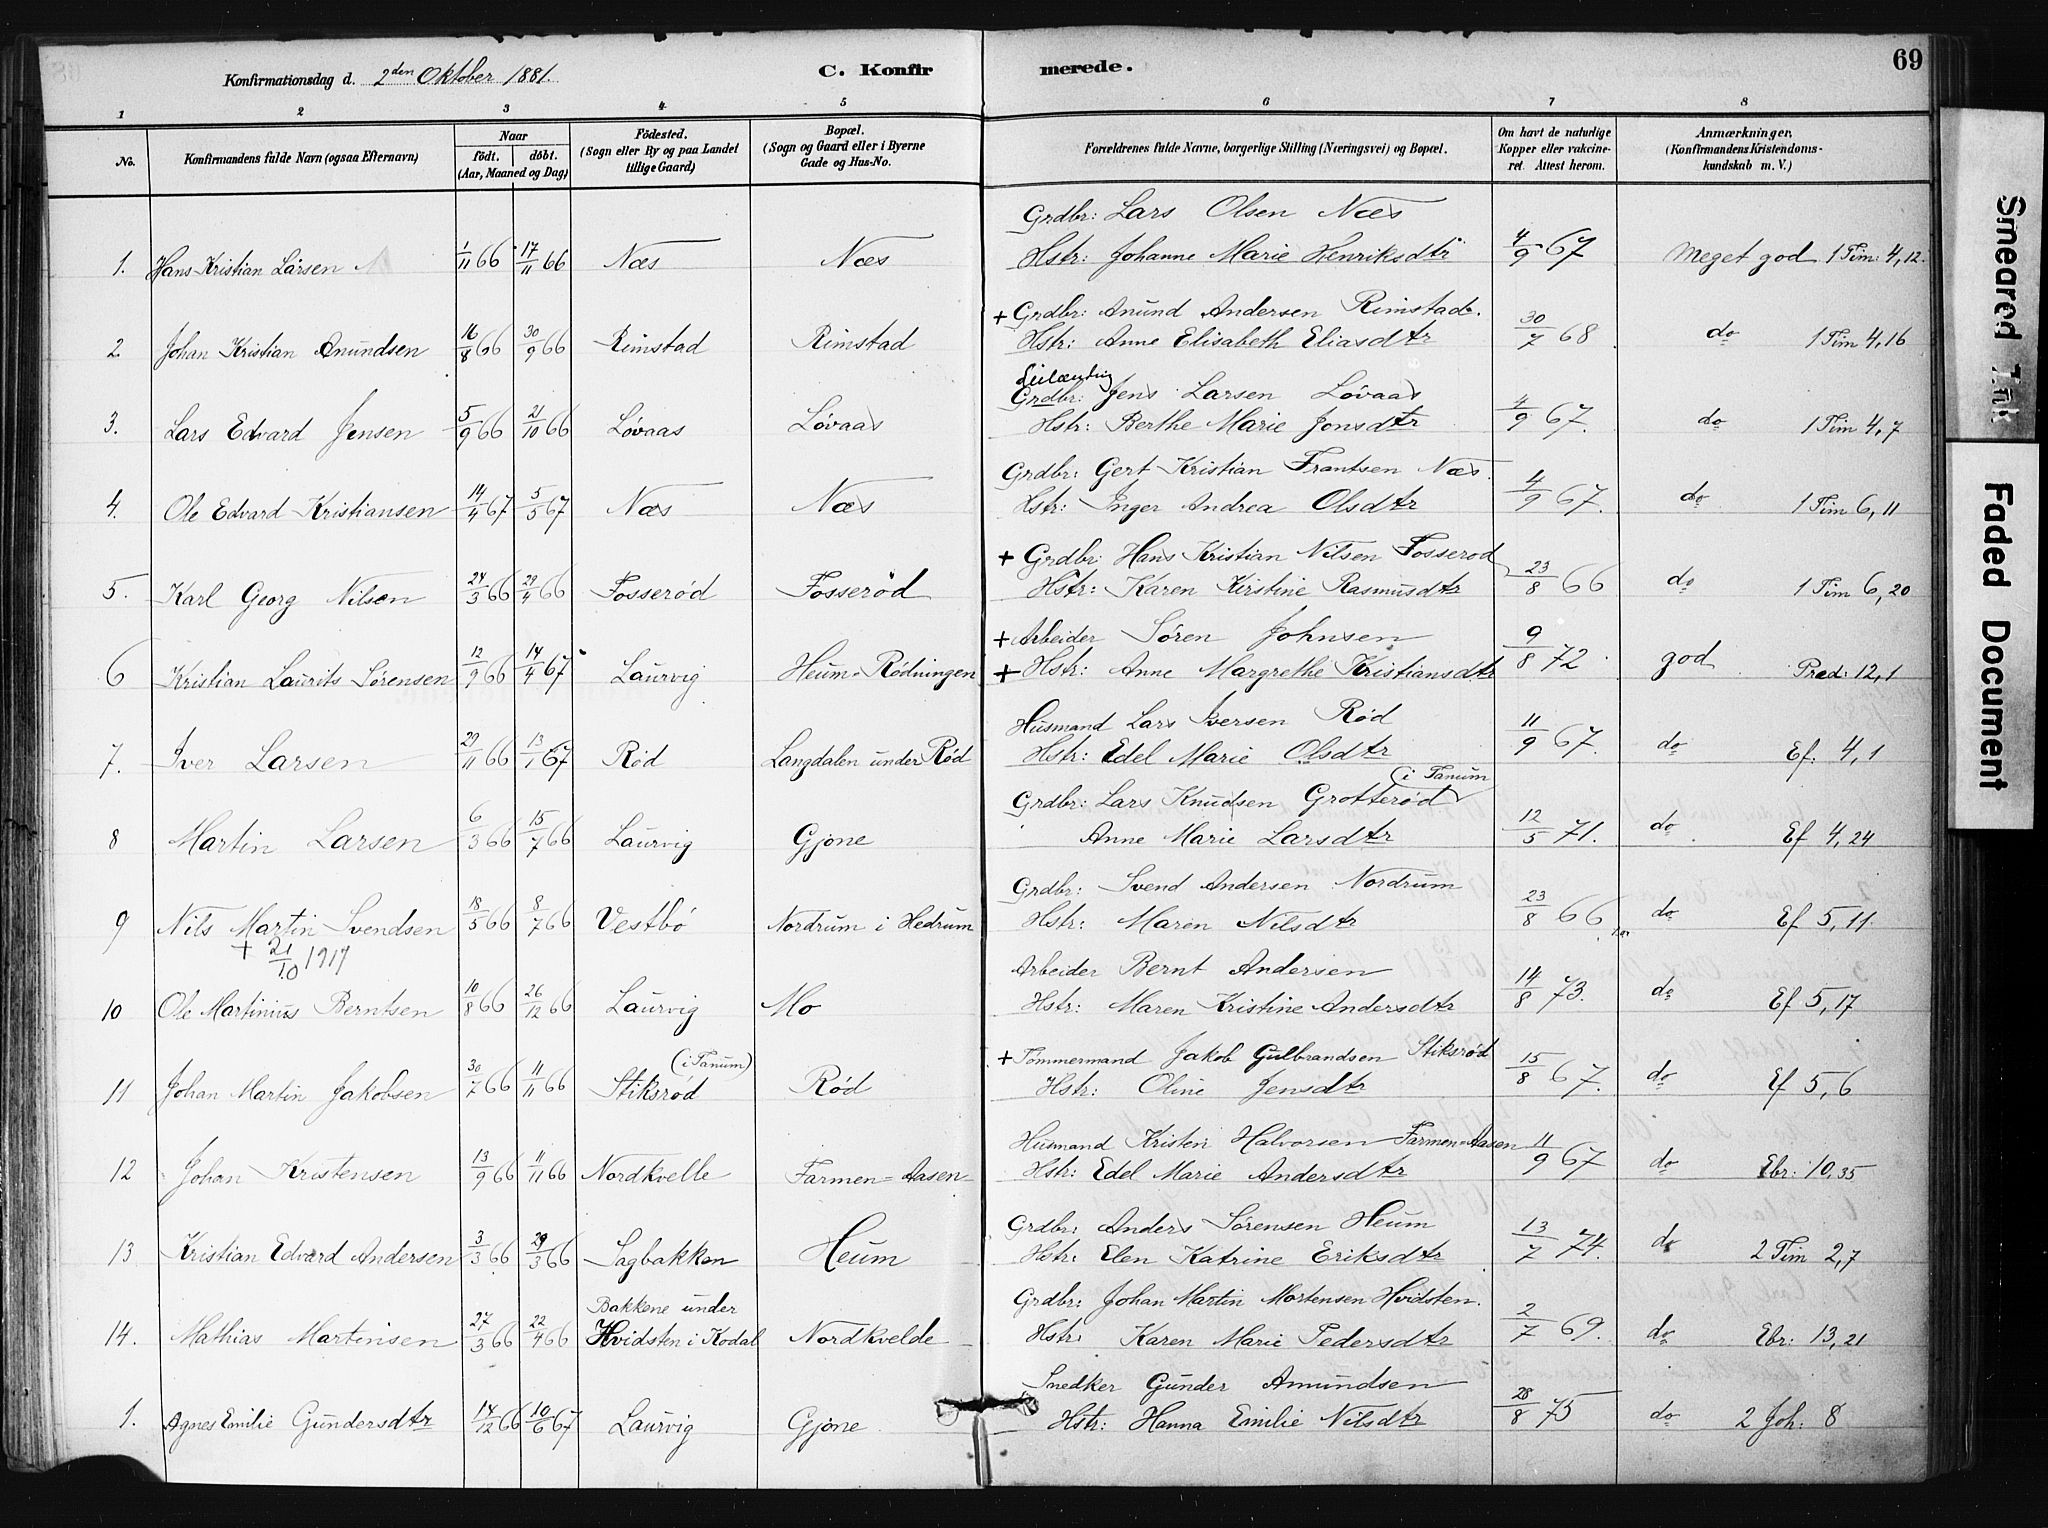 69
Konfirmationsdag d. 2den Oktober 1881. C. Konfirmerede.
1 2 3 4 5 6 7 8
No. Konfirmandens fulde Navn (ogsaa Efternavn) Naar födt. döbt. (Aar, Maaned og Dag) Födested. (Sogn eller By og paa Landet tillige Gaard.) Bopæl. (Sogn og Gaard eller i Byerne Gade og Hus-No. Forældrenes fulde Navne, borgerlige Stilling (Næringsvei) og Bopæl. Om havt de naturlige Kopper eller vakcineret. Attest herom. Anmærkninger. (Konfirmandens Kristendomskundskab m. V.)
Grdbr: Lars Olsen Næs
1. Hans Kristian Larsen 1/11 66 17/11 66 Næs Næs Hstr: Johanne Marie Henriksdtr 4/9 67 Meget god 1 Tim: 4,12.
+ Grdbr: Anund Andersen Rimstad.
2 Johan Kristian Anundsen 16/8 66 30/9 66 Rimstad Rimstad Hstr: Anne Elisabeth Eliasdtr 30/7 68 do 1 Tim 4,16
Leilænding
Grdbr: Jens Larsen Lövaas
3. Lars Edvard Jensen 5/9 66 21/10 66 Lövaas Lövaas Hstr: Berthe Marie Jonsdtr 4/9 67. do 1 Tim 4,7
Grdbr: Gert Kristian Frantsen Næs.
4. Ole Edvard Kristiansen 14/4 67 5/5 67 Næs Næs Hstr: Inger Andrea Olsdtr 4/9 67. do 1 Tim 6,11
+ Grdbr: Hans Kristian Nilsen Fosserod
5. Karl Georg Nilsen 24/3 66 29/4 66 Fosseröd Fosseröd Hstr: Karen Kirstine Rasmusdtr 23/8 66 do 1 Tim 6,20
+ Arbeider Sören Johnsen
6 Kristian Laurits Sörensen 12/9 66 14/4 67 Laurvig Heum-Rödningen + Hstr: Anne Margrethe Kristiansdtr 9/8 72. god Præd: 12,1
Husmand Lars Iversen Röd
7. Iver Larsen 29/11 66 13/1 67 Röd Langdalen under Röd Hstr: Edel Marie Olsdtr 11/9 67. do Ef: 4,1
(i Tanum
Grdbr: Lars Knudsen Grotteröd
8 Martin Larsen 6/3 66 15/7 66 Laurvig Gjone Anne Marie Larsdtr 12/5 71. do. Ef 4,24
Grdbr: Svend Andersen Nordrum
9 Nils Martin Svendsen 18/5 66 8/7 66 Vestbö Nordrum i Hedrum Hstr: Maren Nilsdtr 23/8 66 do Ef 5,11.
+ 21/10 1917
Arbeider Bernt Andersen
10 Ole Martinius Berntsen 10/8 66 26/12 66 Laurvig Mo Hstr: Maren Kristine Andersdtr 14/8 73. do Ef 5,17
+ Tömmermand Jakob Gulbrandsen Stiksröd
(i Tanum)
11 Johan Martin Jakobsen 30/7 66 11/11 66 Stiksröd Röd Hstr: Oline Jensdtr 15/8 67. do Ef 5,6
Husmand Kristen Halvorsen Farmen=Aasen
12 Johan Kristensen 13/9 66 11/11 66 Nordkvelle Farmen=Aasen Hstr: Edel Marie Andersdtr 11/9 67 do Ebr: 10,35
Grdbr: Anders Sörensen Heum
13 Kristian Edvard Andersen 3/3 66 29/3 66 Sagbakken Heum Hstr: Elen Katrine Eriksdtr 13/7 74. do 2 Tim 2,7
Grdbr: Johan Martin Mortensen Hvidsten.
14. Mathias Martinsen 27/3 66 22/4 66 Bakkene under Hvidsten i Kodal Nordkvelde Hstr: Karen Marie Pedersdtr 2/7 69. do Ebr: 13,21
Snedker Gunder Amundsen
1. Agnes Emilie Gundersdtr 14/12 66 10/6 67 Laurvig Gjone Hstr: Hanna Emilie Nilsdtr 28/8 75 do 2 Joh: 8
Smeared Ink
Faded Document